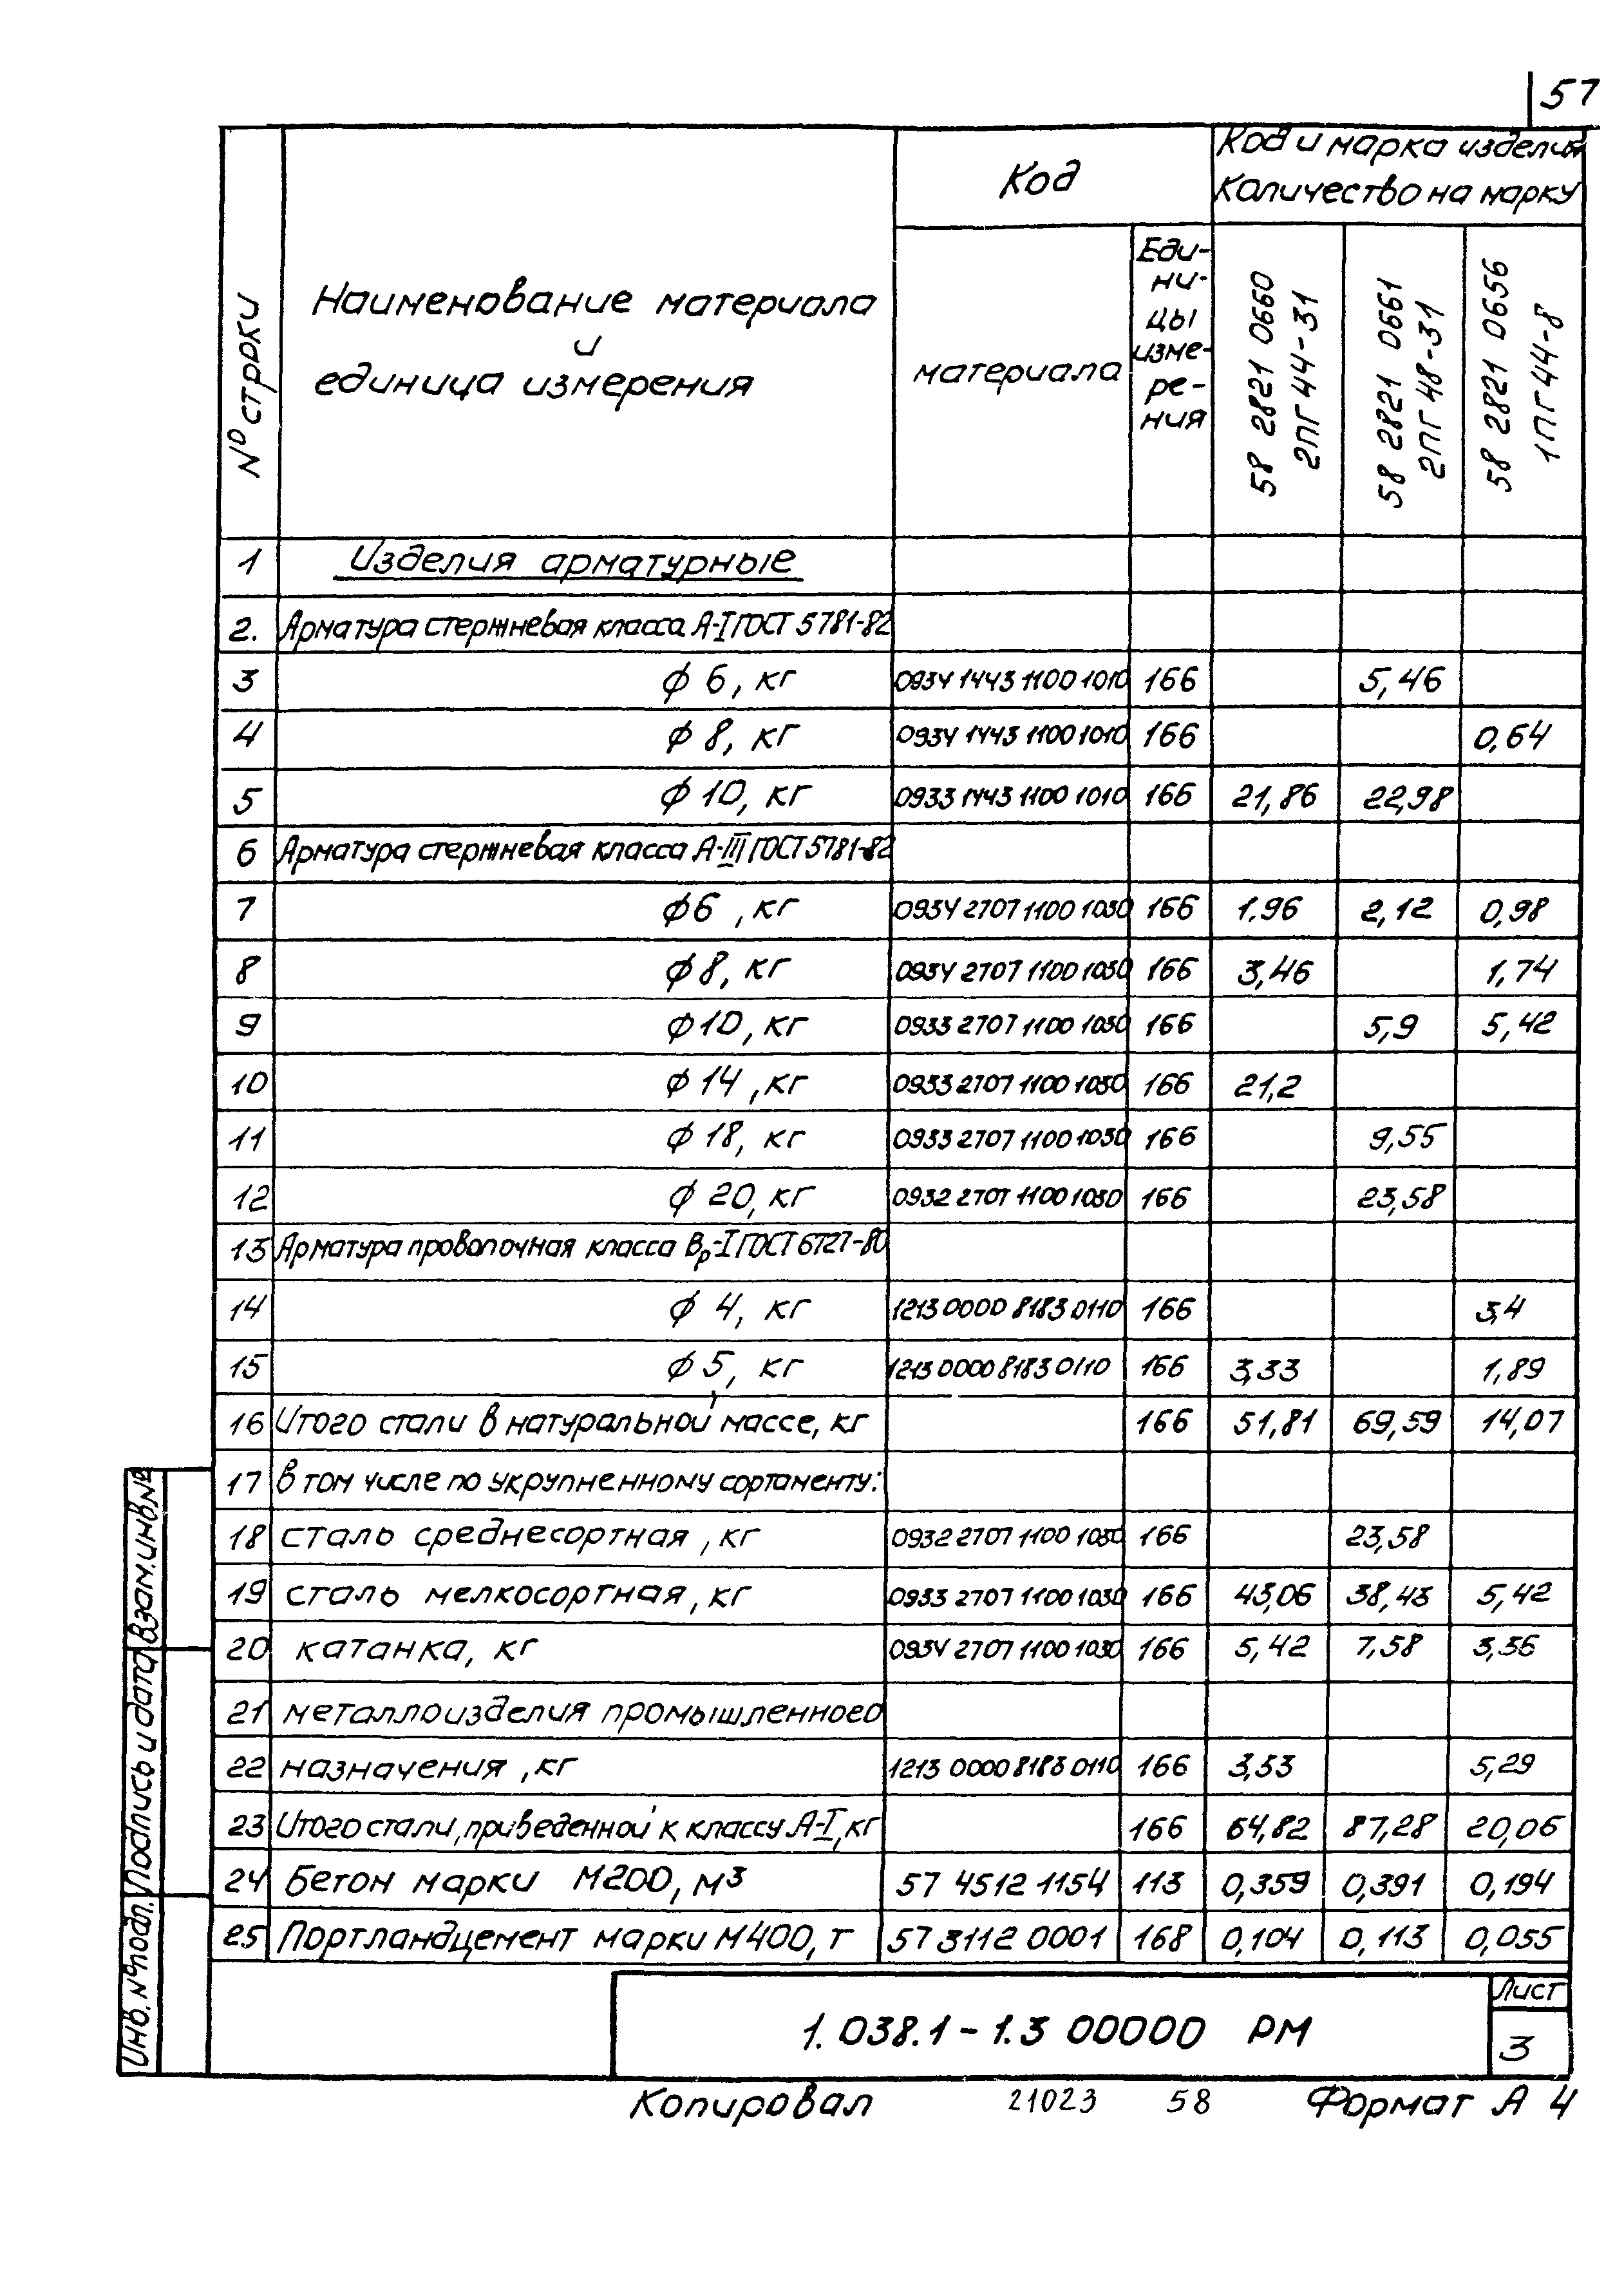 57
№ строки
Наименование материала
и
единица измерения
Код
Код и марка изделия
Количество на марку
материала
Еди-
ни-
цы
изме-
ре-
ния
58 2821 0660
2ПГ 44-31
58 2821 0661
2ПГ 48-31
58 2821 0656
1ПГ 44-8
1 Изделия арматурные
2. Арматура стержневая класса А-I ГОСТ 5781-82
3 ф 6, кг 0934 1443 1100 1010 166 5,46
4 ф 8, кг 0934 1443 1100 1010 166 0,64
5 ф 10, кг 0933 1443 1100 1010 166 21,86 22,98
6 Арматура стержневая класса А-III ГОСТ 5781-82
7 ф6 , кг 0934 2707 1100 1030 166 1.96 2,12 0,98
8 ф8, кг 0934 2707 1100 1030 166 3,46 1,74
9 ф10, кг 0933 2707 1100 1030 166 5,9 5,42
10 ф 14 , кг 0933 2707 1100 1030 166 21,2
11 ф 18, кг 0933 2707 1100 1030 166 9,55
12 ф 20, кг 0932 2707 1100 1030 166 23,58
13 Арматура проволочная класса Вр-I ГОСТ 6727-80
14 ф 4, кг 1213 0000 8183 0110 166 3,4
15 ф 5, кг 1213 0000 8183 0110 166 3,33 1,89
16 Итого стали в натуральной массе, кг 166 51,81 69,59 14,07
17 в том числе по укрупненному сортаменту:
18 сталь среднесортная , кг 0932 2707 1100 1030 166 23,58
19 сталь мелкосортная, кг 0933 2707 1100 1030 166 43,06 38,43 5,42
20 катанка, кг 0934 2707 1100 1030 166 5,42 7,58 3,36
21 металлоизделия промышленного
22 назначения , кг 1213 0000 8183 0110 166 3,33 5,29
23 Итого стали, приведенной к классу А-I, кг 166 64,82 87,28 20,06
24 Бетон марки М200, м³ 57 4512 1154 113 0,359 0,391 0,194
25 Портландцемент марки М400, т 57 3112 0001 168 0,104 0,113 0,055
Взам.инв.№
Подпись и дата
Инв. № подл.
1. 038.1 - 1.3 00000 РМ
Лист
3
Копировал 21023 58 Формат А 4